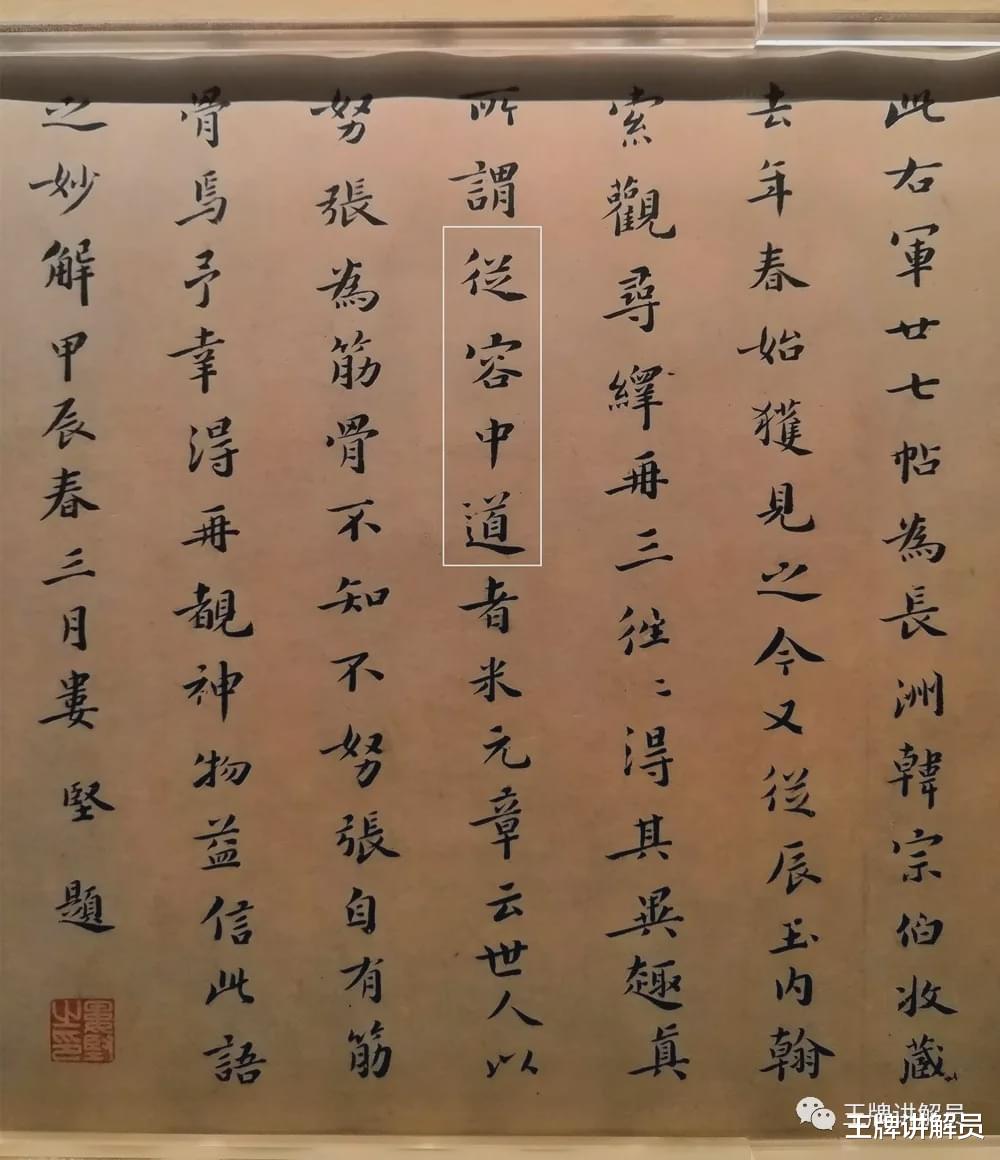 此右軍廿七帖為長洲韓宗伯收藏
去年春始獲見之今又從辰玉內翰
索觀尋繹再三往〻得其異趣真
所謂從容中道者米元章云世人以
努張為筋骨不知不努張自有筋
骨焉予幸得再覩神物益信此語
之妙解甲辰春三月婁堅題
婁堅之印
王牌讲解员
王牌讲解员